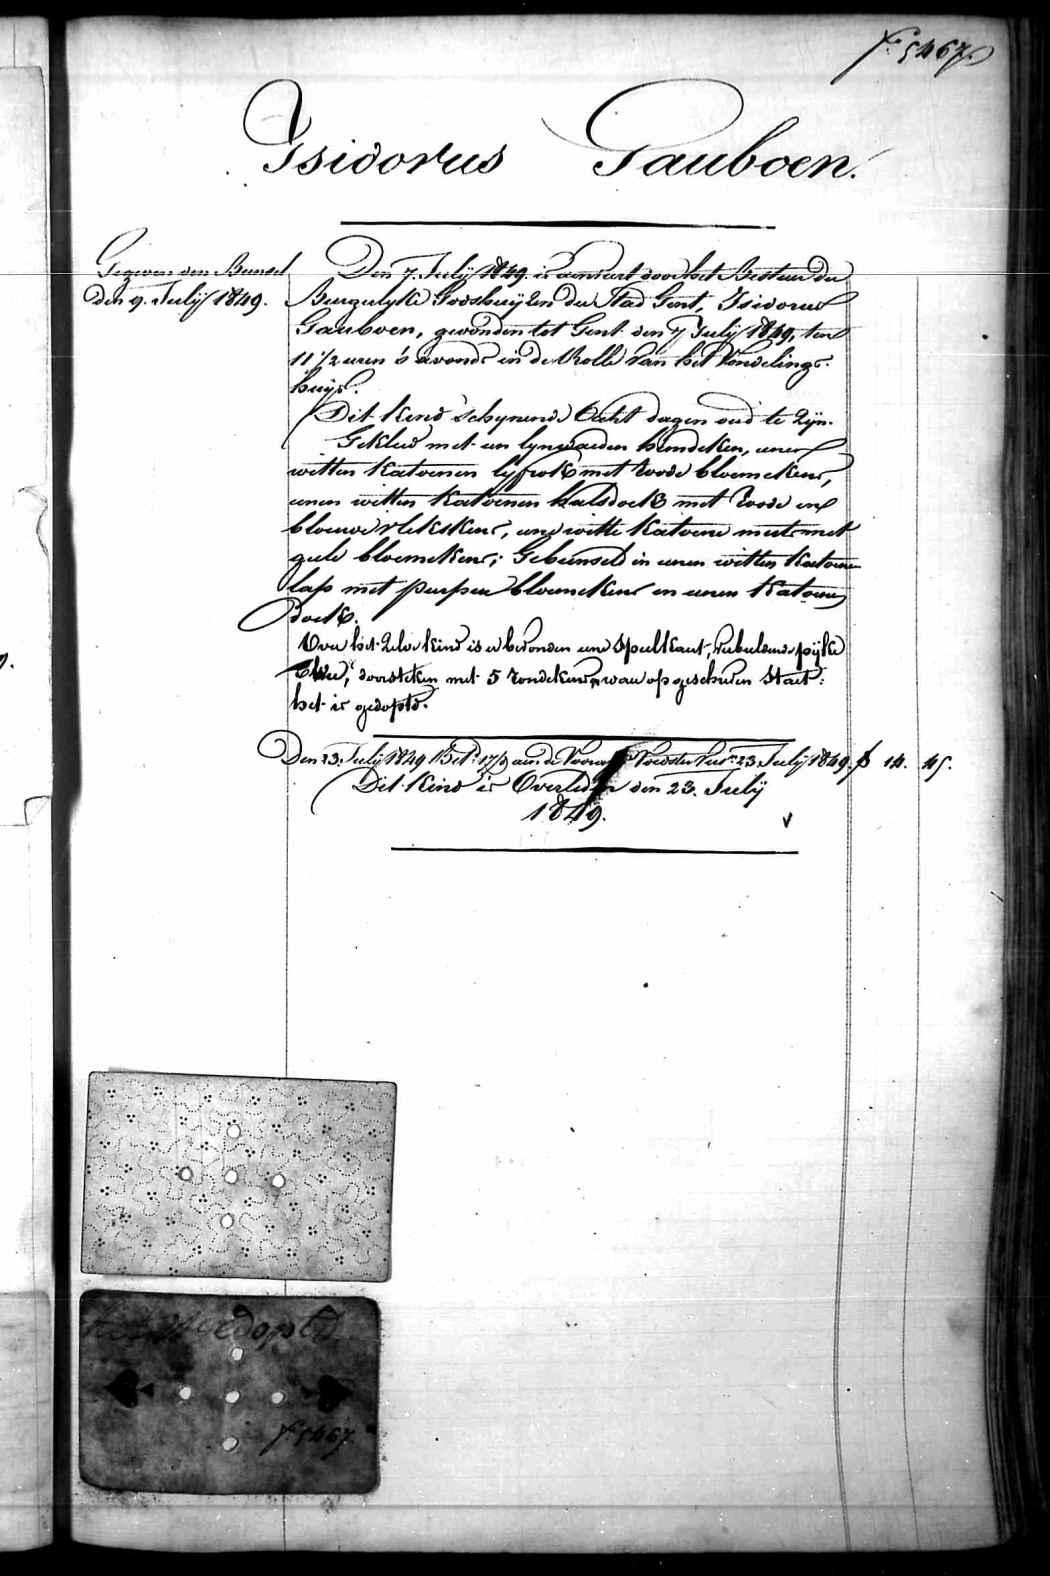 f.º 5467.
Isidorus Gauboen.
Gegeven den Bunsel
den 9. Julÿ 1849.
Den 7. Julÿ 1849. is aenveert door het Bestuur der
Burgerlyke Godshuÿzen der Stad Gent, Isidorus
Gauboen, gevonden tot Gent den 7 Julÿ 1849, ten
11 1/2 uren 's avonds in de Rolle van het Vondelings-
huÿs.
Dit kind schynende acht dagen oud te zÿn.
Gekleed met een lynwaeden hemdeken, eenen
witten katoenen lyfrok met roode bloemekens,
eenen witten katoenen halsdoek met roode en
blauwe vlekskens, eene witte katoene muts met
gele bloemekens; Gebunseld in eenen witten katoenen
lap met purpere bloemekens en eenen katoenen
doek.
Over het zelve kind is er bevonden eene Speelkaert,
doorsteken met 5 rondekens, waer op geschreven staet:
het is gedoopt.
Den 23. Julÿ 1849 Bet. aen de Voedster 23. Julÿ 1849. 14. 45.
Dit kind is Overleden den 23. Julÿ
1849.
gedopt
f.º 5467.